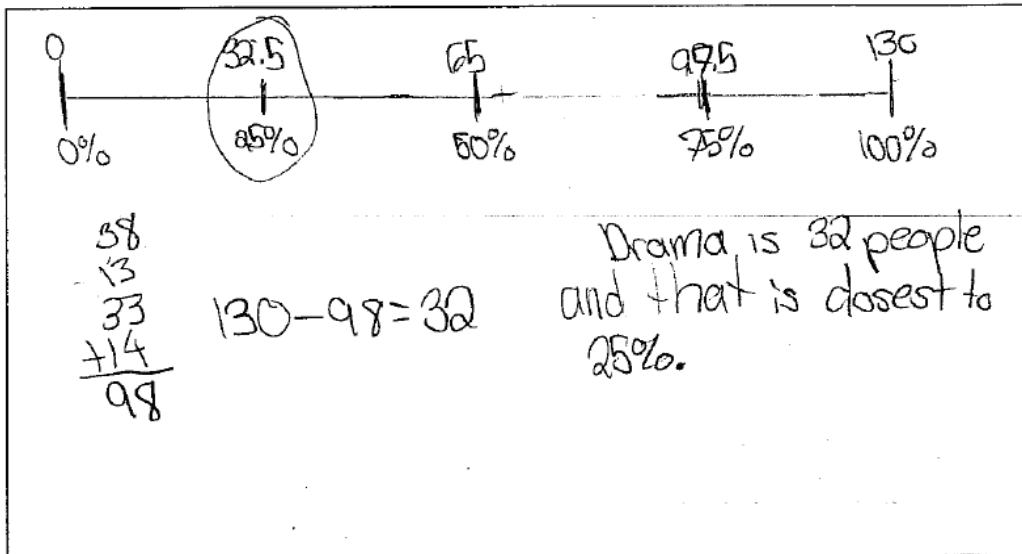 0 32.5 65 97.5 130
0% 25% 50% 75% 100%
38
13
33
+14
98
130-98=32
Drama is 32 people
and that is closest to
25%.